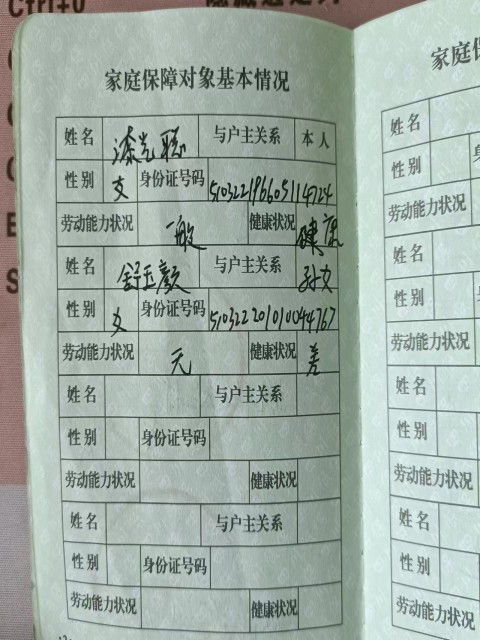 Ctrl+U
家庭保障对象基本情况
姓名 漆光聪 与户主关系 本人
性别 女 身份证号码 510322196605114724
劳动能力状况 一般 健康状况 健康
姓名 舒玉颜 与户主关系 孙女
性别 女 身份证号码 510322201010044767
劳动能力状况 无 健康状况 差
姓名 与户主关系
性别 身份证号码
劳动能力状况 健康状况
姓名 与户主关系
性别 身份证号码
劳动能力状况 健康状况
家庭保
姓名
性别
劳动能力状况
姓名
性别
劳动能力状况
姓名
性别
劳动能力状况
姓名
性别
劳动能力状况